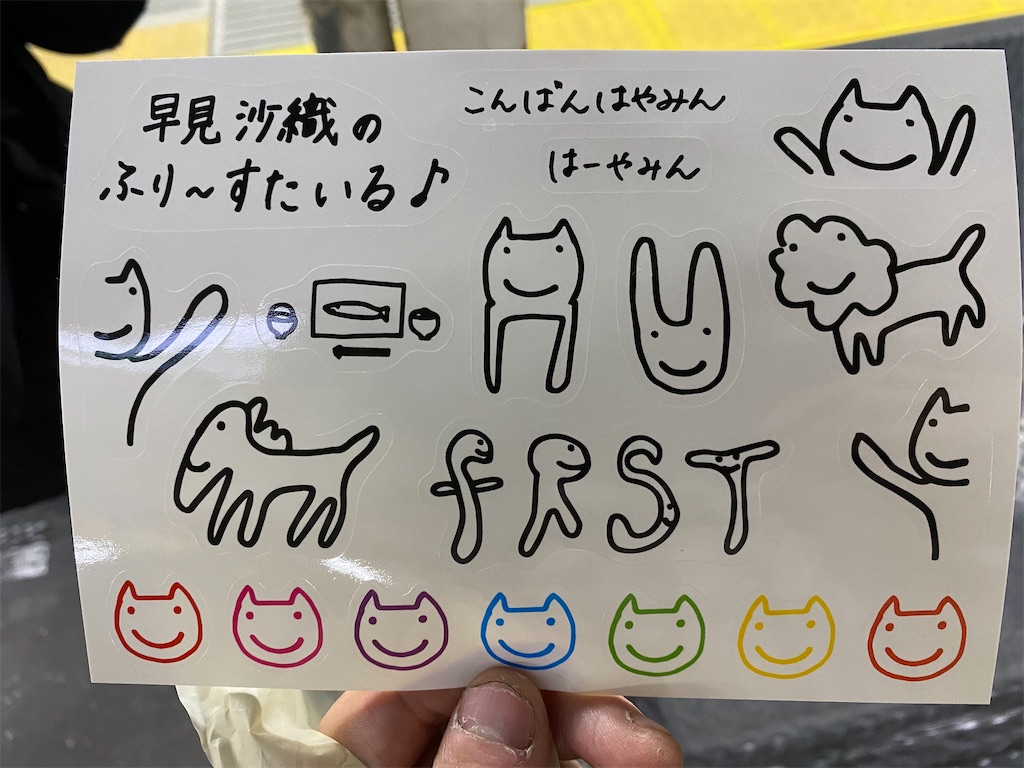 早見沙織の
ふり〜すたいる♪
こんばんはやみん
はーやみん
fRST